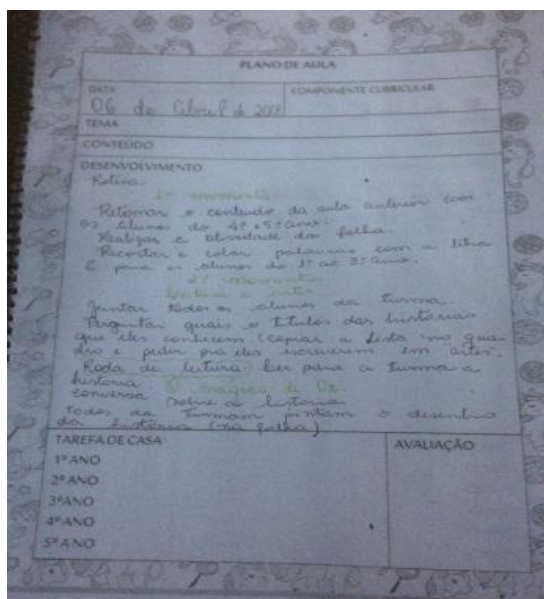 PLANO DE AULA
DATA
COMPONENTE CURRICULAR
06 de Abril de 2018
TEMA
CONTEÚDO
DESENVOLVIMENTO
Rotina.
1º momento
Retomar o conteúdo da aula anterior com
os alunos do 4º e 5º ano.
Realizar a atividade da folha.
Recortar e colar palavras com a letra
C para os alunos do 1º ao 3º ano.
2º momento
Leitura e artes
Juntar todos os alunos da turma.
Perguntar quais o títulos das histórias
que eles conhecem (copiar a lista no qua-
dro e pedir pra eles escreverem em artes.
Roda de leitura: ler para a turma a
história: O mágico de Oz
conversa sobre a história
Todos da turmam pintam o desenho
da história (na folha)
TAREFA DE CASA
AVALIAÇÃO
1º ANO
2º ANO
3º ANO
4º ANO
5º ANO